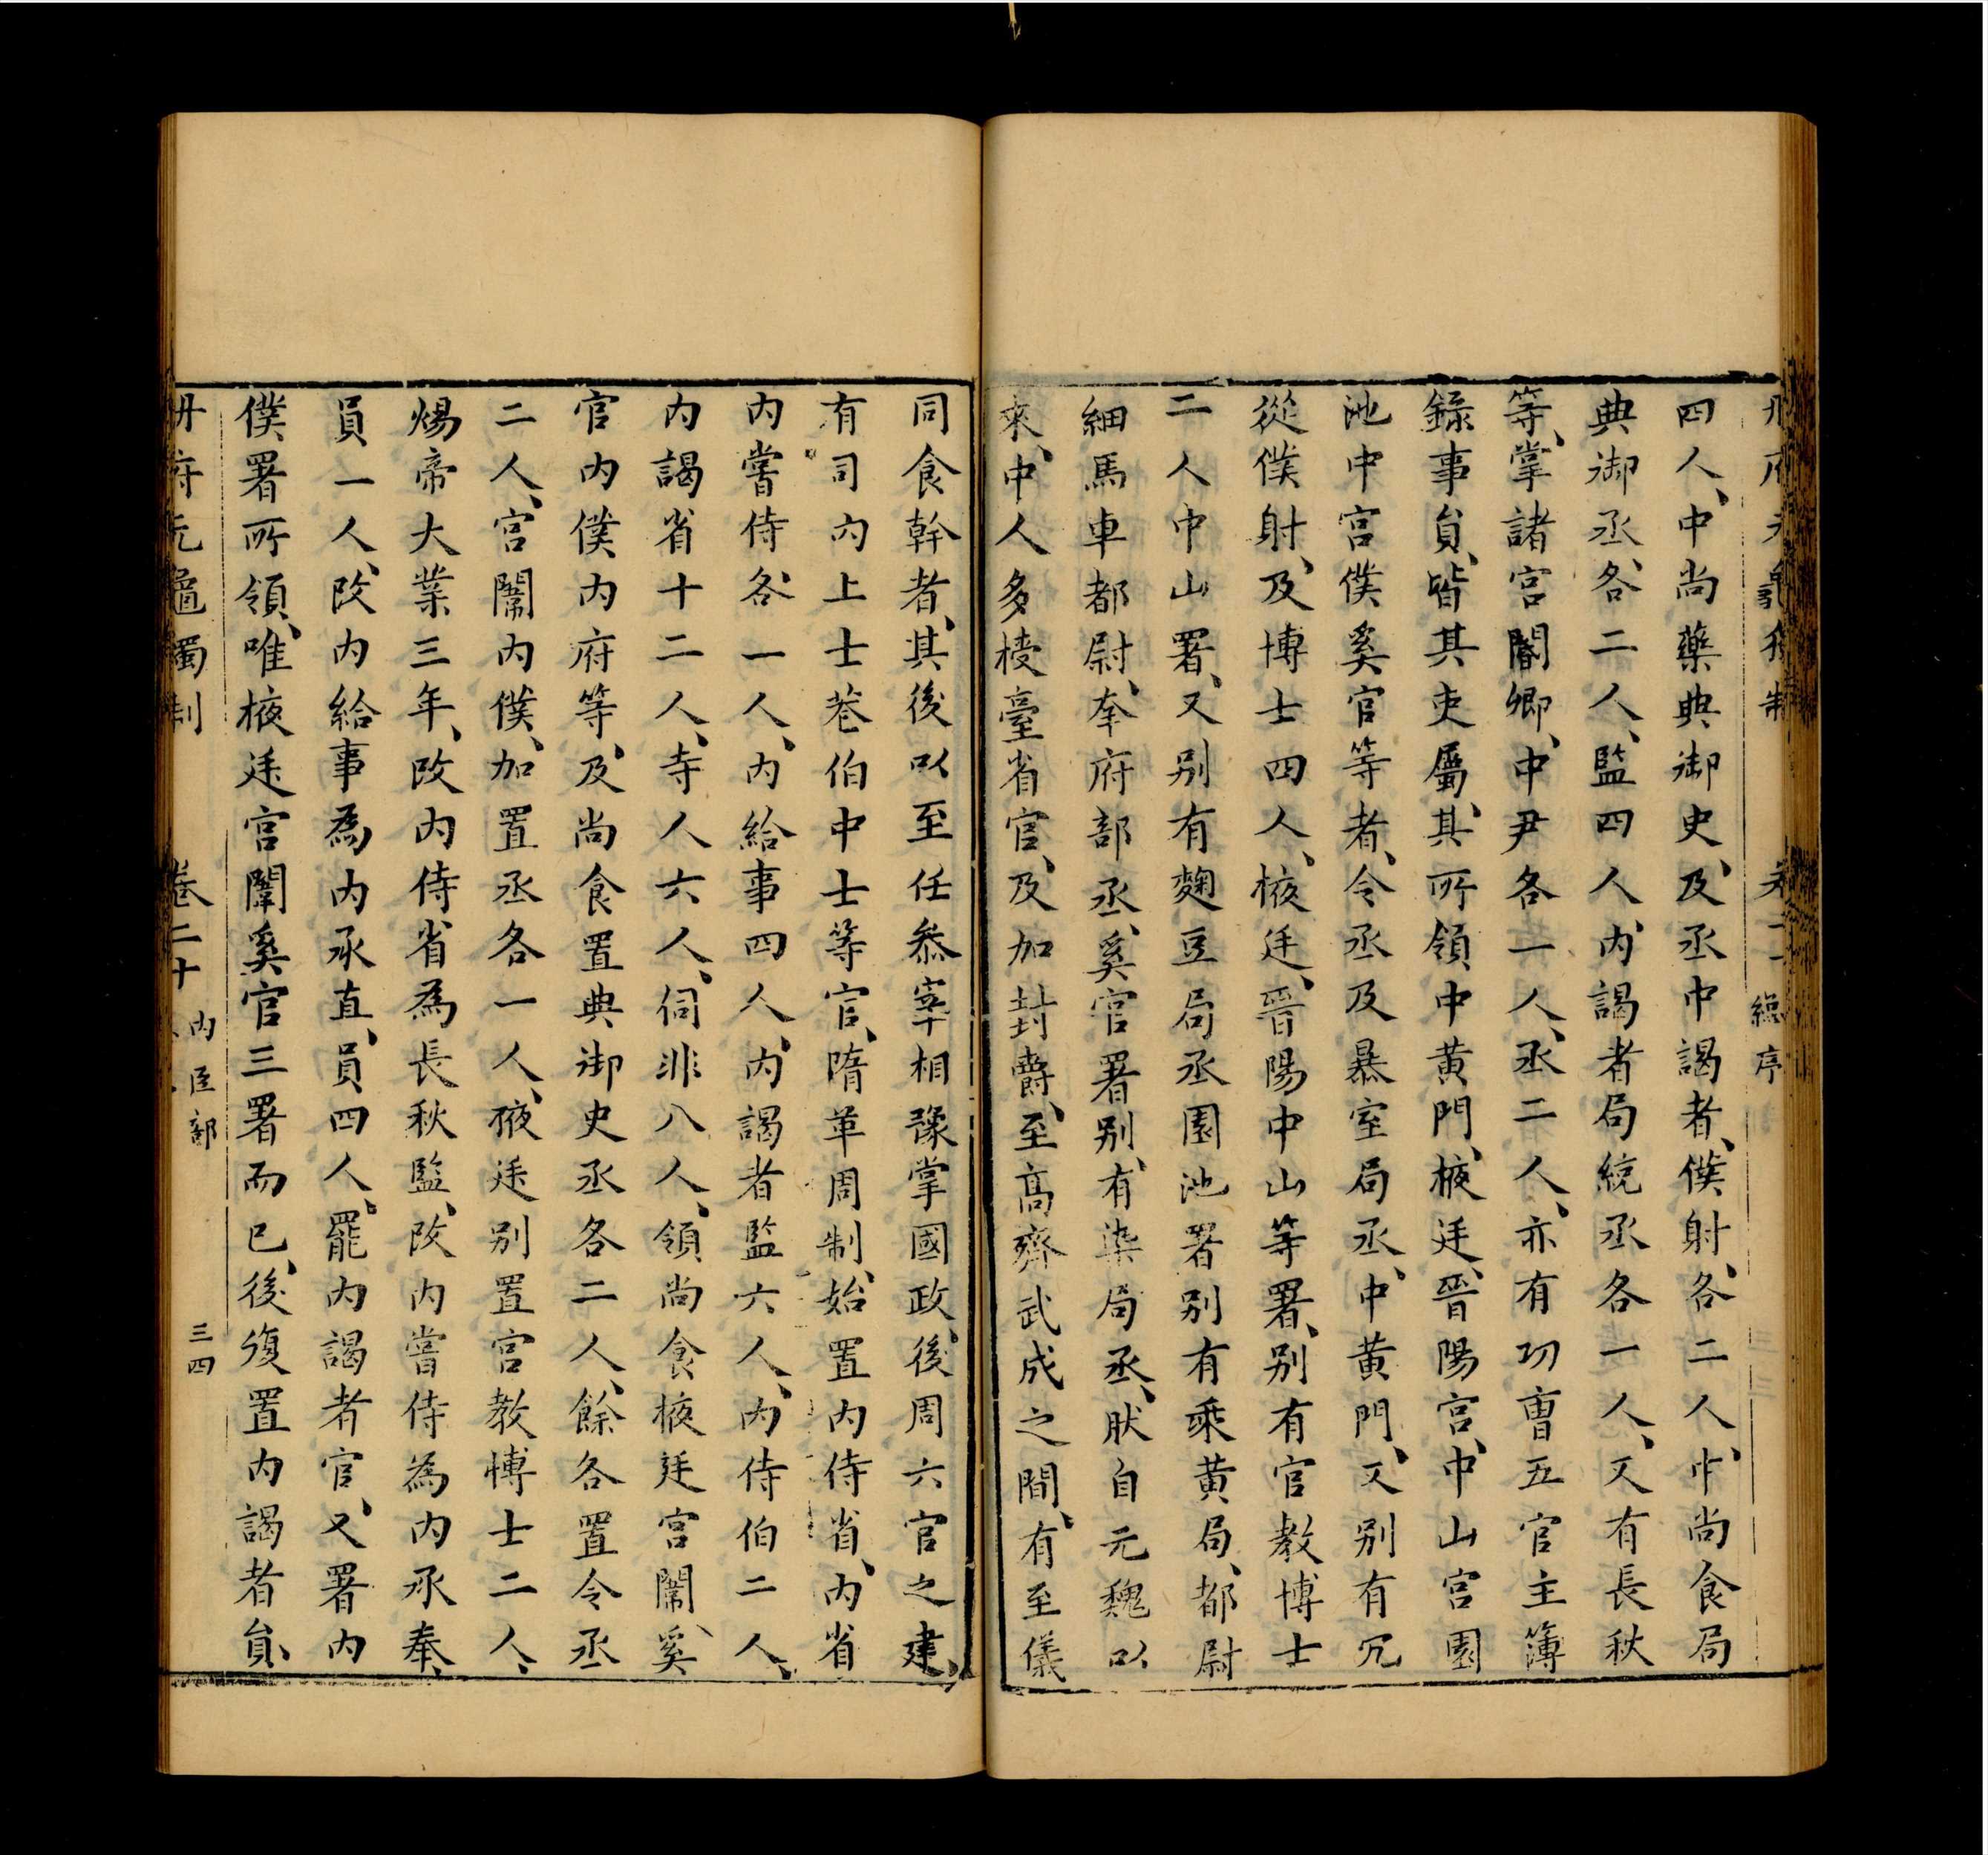 四人、中尚藥典御史、及丞中謁者、僕射、各二人、中尚食局
典御丞、各二人、監四人、內謁者局統丞各一人、又有長秋
等、掌諸宮閽卿、中尹各一人、丞二人、亦有功曹五官主簿
錄事負、皆其吏屬、其所領中黃門、掖廷、晉陽宮、中山宮園
池中宮僕奚官等者、令丞及暴室局丞、中黃門、又別有冗
從僕射、及博士四人、掖廷、晉陽中山等署、別有官教博士
二人中山署、又別有麴豆局丞園池署別有乘黃局、都尉
細馬車都尉、牽府部丞、奚官署別、有染局丞、肰自元魏以
來、中人多棱臺省官、及加封爵、至高齊武成之間、有至儀
同食幹者、其後以至任叅宰相豫掌國政、後周六官之建、
有司內上士巷伯中士等官、隋革周制、始置內侍省、內省
內嘗侍各一人、內給事四人、內謁者監六人、內侍伯二人、
內謁省十二人、寺人六人、伺非八人、領尚食掖廷宮闈、奚
官內僕內府等、及尚食置典御史丞各二人、餘各置令丞
二人、宮闈內僕、加置丞各一人、掖廷別置宮教博士二人、
煬帝大業三年、改內侍省為長秋監、改內嘗侍為內承奉、
員一人、改內給事為內承直、員四人、罷內謁者官、又署內
僕署所領、唯掖廷宮闈奚官三署而已、後復置內謁者負、
冊府元龜獨制 卷二十 內臣部 三四